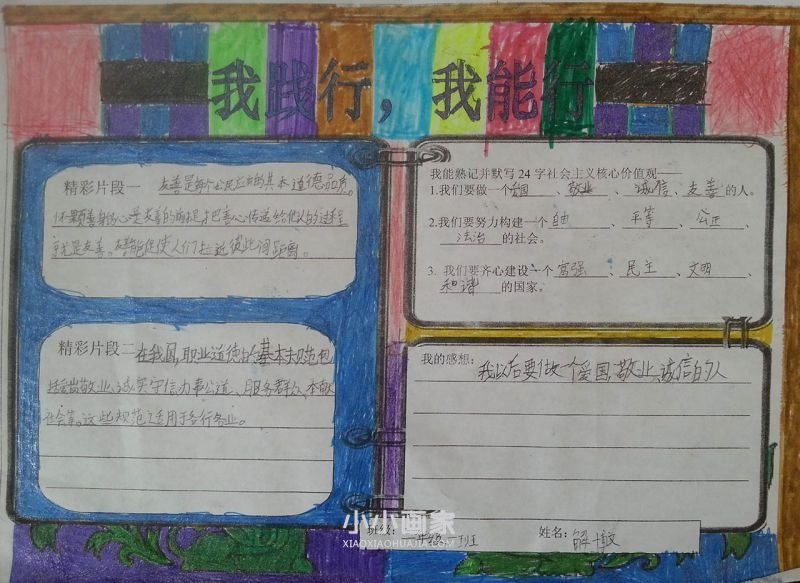 我践行，我能行
精彩片段一 友善是每个公民应有的基本道德品质。
怀颗善良的心是友善的前提,把善心传递给他人的过程
就是友善。友善能促使人们拉近彼此间距离。
精彩片段二 在我国,职业道德的基本规范包
括爱岗敬业、诚实守信、办事公道、服务群众、奉献
社会等。这些规范适用于各行各业。
我能熟记并默写24字社会主义核心价值观——
1.我们要做一个爱国、敬业、诚信、友善的人。
2.我们要努力构建一个自由、平等、公正、
法治的社会。
3. 我们要齐心建设一个富强、民主、文明、
和谐的国家。
我的感想: 我以后要做一个爱国,敬业,诚信的人
小小画家
XIAOXIAOHUAJIA.COM
班级: 班
姓名: 解